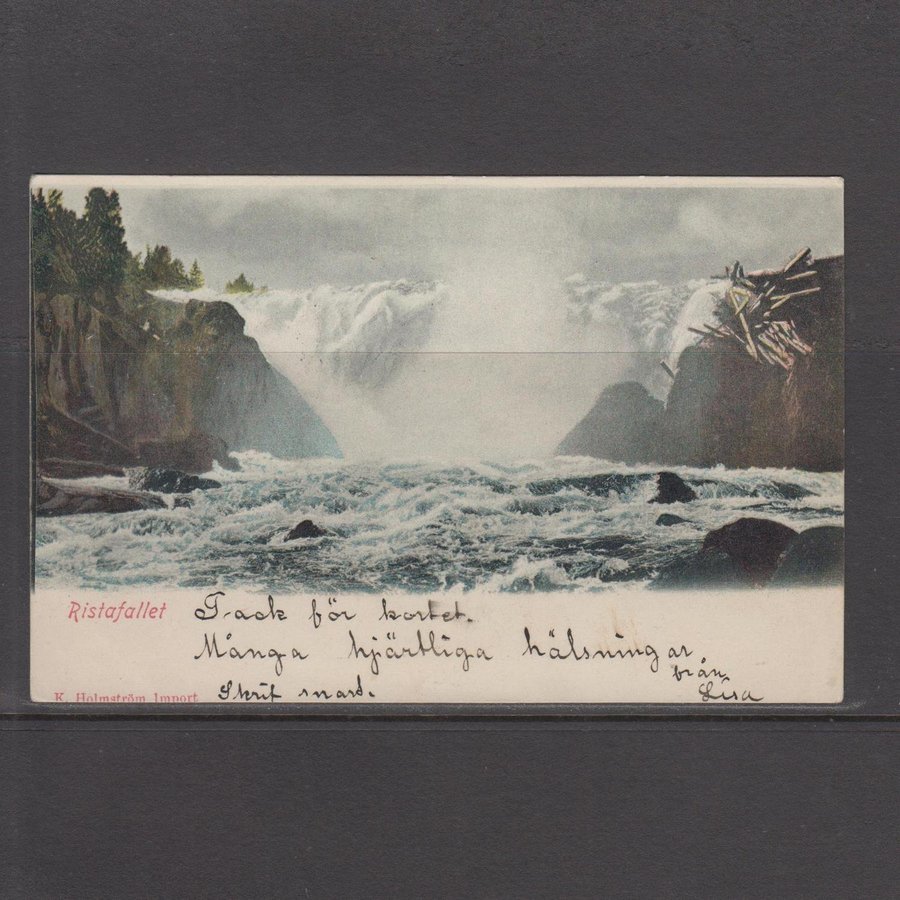 Ristafallet
Tack för kortet.
Många hjärtliga hälsningar
från
Lisa
Skrif snart.
K. Holmström Import